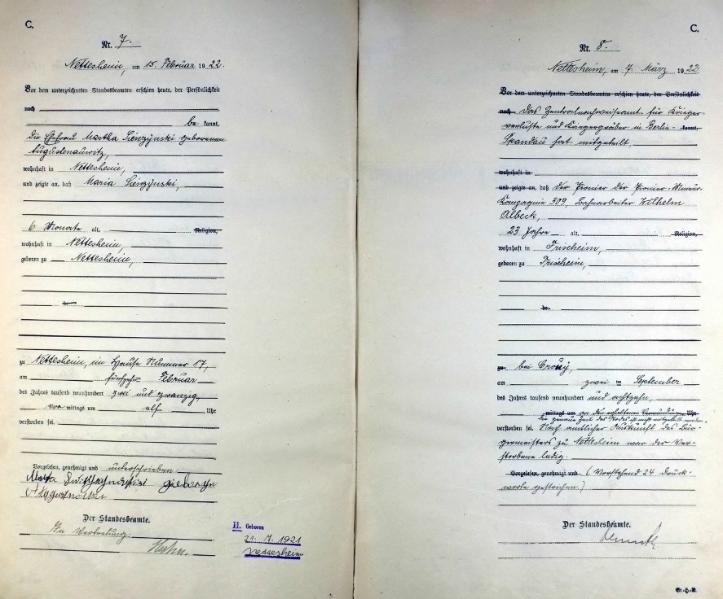 C.
Nr. 7.
Nettesheim, am 15. Februar 1922.
Vor dem unterzeichneten Standesbeamten erschien heute, der Persönlichkeit
nach
be kannt,
die Ehefrau Martha geborenen
wohnhaft in Nettesheim,
und zeigte an, daß Maria
6 Monate alt,
Religion,
wohnhaft in Nettesheim,
geboren zu Nettesheim,
zu Nettesheim, im Hause Nummer 17,
am fünfzehn Februar
des Jahres tausend neunhundert zwei und zwanzig,
Vor mittags um elf Uhr
verstorben sei.
Vorgelesen, genehmigt und unterschrieben
Der Standesbeamte.
In Vertretung.
Hahn.
II. Geboren
21. 7. 1921
Nettesheim
C.
Nr. 8.
Nettesheim, am 7. März 1922
Vor dem unterzeichneten Standesbeamten erschien heute, der Persönlichkeit
nach Das Zentralnachweiseamt für Krieger-
verluste und Kriegergräber in Berlin- kannt,
Spandau hat mitgeteilt,
wohnhaft in
und zeigte an, daß der Pionier der Pionier-Mineur-
Kompagnie 399, Bahnarbeiter Wilhelm
Albeck,
23 Jahre alt, Religion,
wohnhaft in Frixheim,
geboren zu Frixheim,
zu bei Crouy,
am zwei ten September
des Jahres tausend neunhundert und achtzehn,
mittags um Uhr
verstorben sei. Nach amtlicher Auskunft des Bür-
germeisters zu Nettesheim war der Ver-
storbene ledig.
Vorgelesen, genehmigt und (Vorstehend 24 Druck-
worte gestrichen.)
Der Standesbeamte.